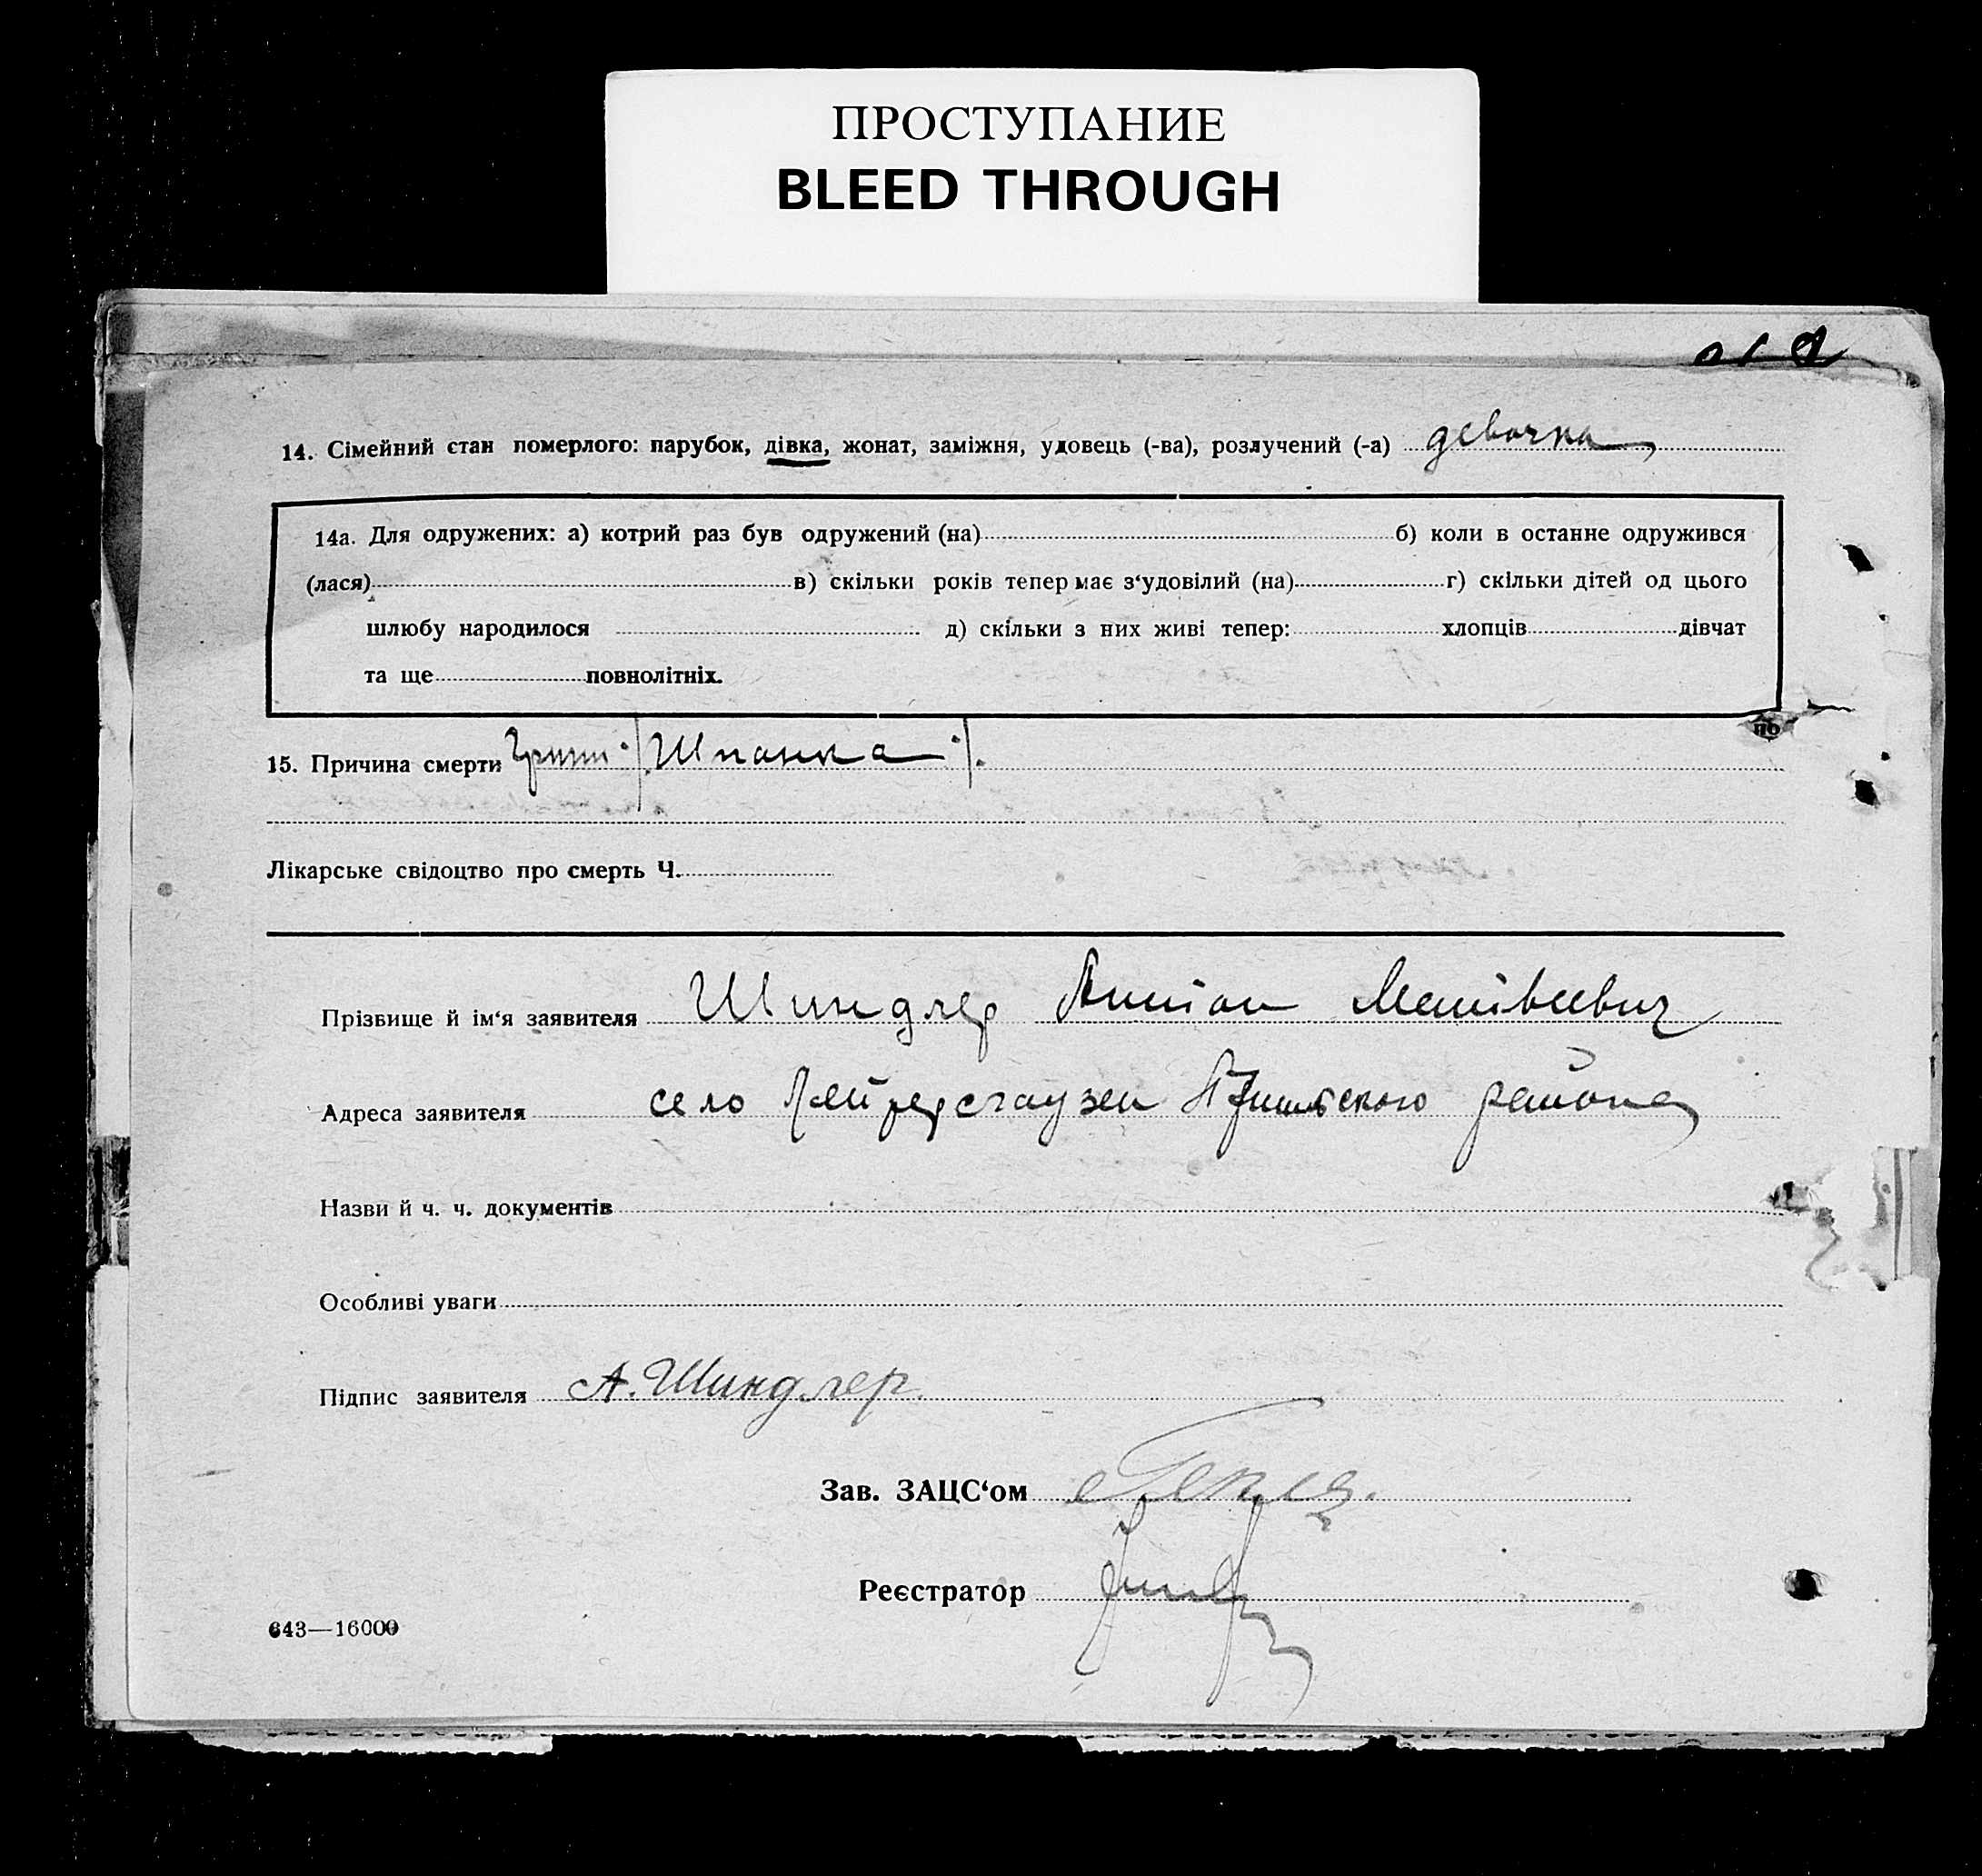 ПРОСТУПАНИЕ
BLEED THROUGH
14. Сімейний стан померлого: парубок, дівка, жонат, заміжня, удовець (-ва), розлучений (-а) девочка
14а. Для одружених: а) котрий раз був одружений (на) б) коли в останнє одружився
(лася) в) скільки років тепер має з‘удовілий (на) г) скільки дітей од цього
шлюбу народилося д) скільки з них живі тепер: хлопців дівчат
та ще повнолітніх.
по
15. Причина смерти Грипп /Шпанка/.
Лікарське свідоцтво про смерть Ч.
Прізвище й ім‘я заявителя Шиндлер Антон
Адреса заявителя село района
Назви й ч. ч. документів
Особливі уваги
Підпис заявителя А. Шиндлер
Зав. ЗАЦС‘ом
Реєстратор
643—16000